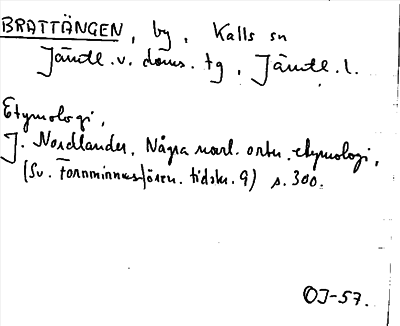 BRATTÄNGEN, by, Kalls sn
Jämtl. v. doms. tg, Jämtl. l.
Etymologi,
J. Nordlander, Några norrl. ortn. etymologi,
(Sv. Fornminnesfören. tidskr. 9) s. 300.
OJ-57.